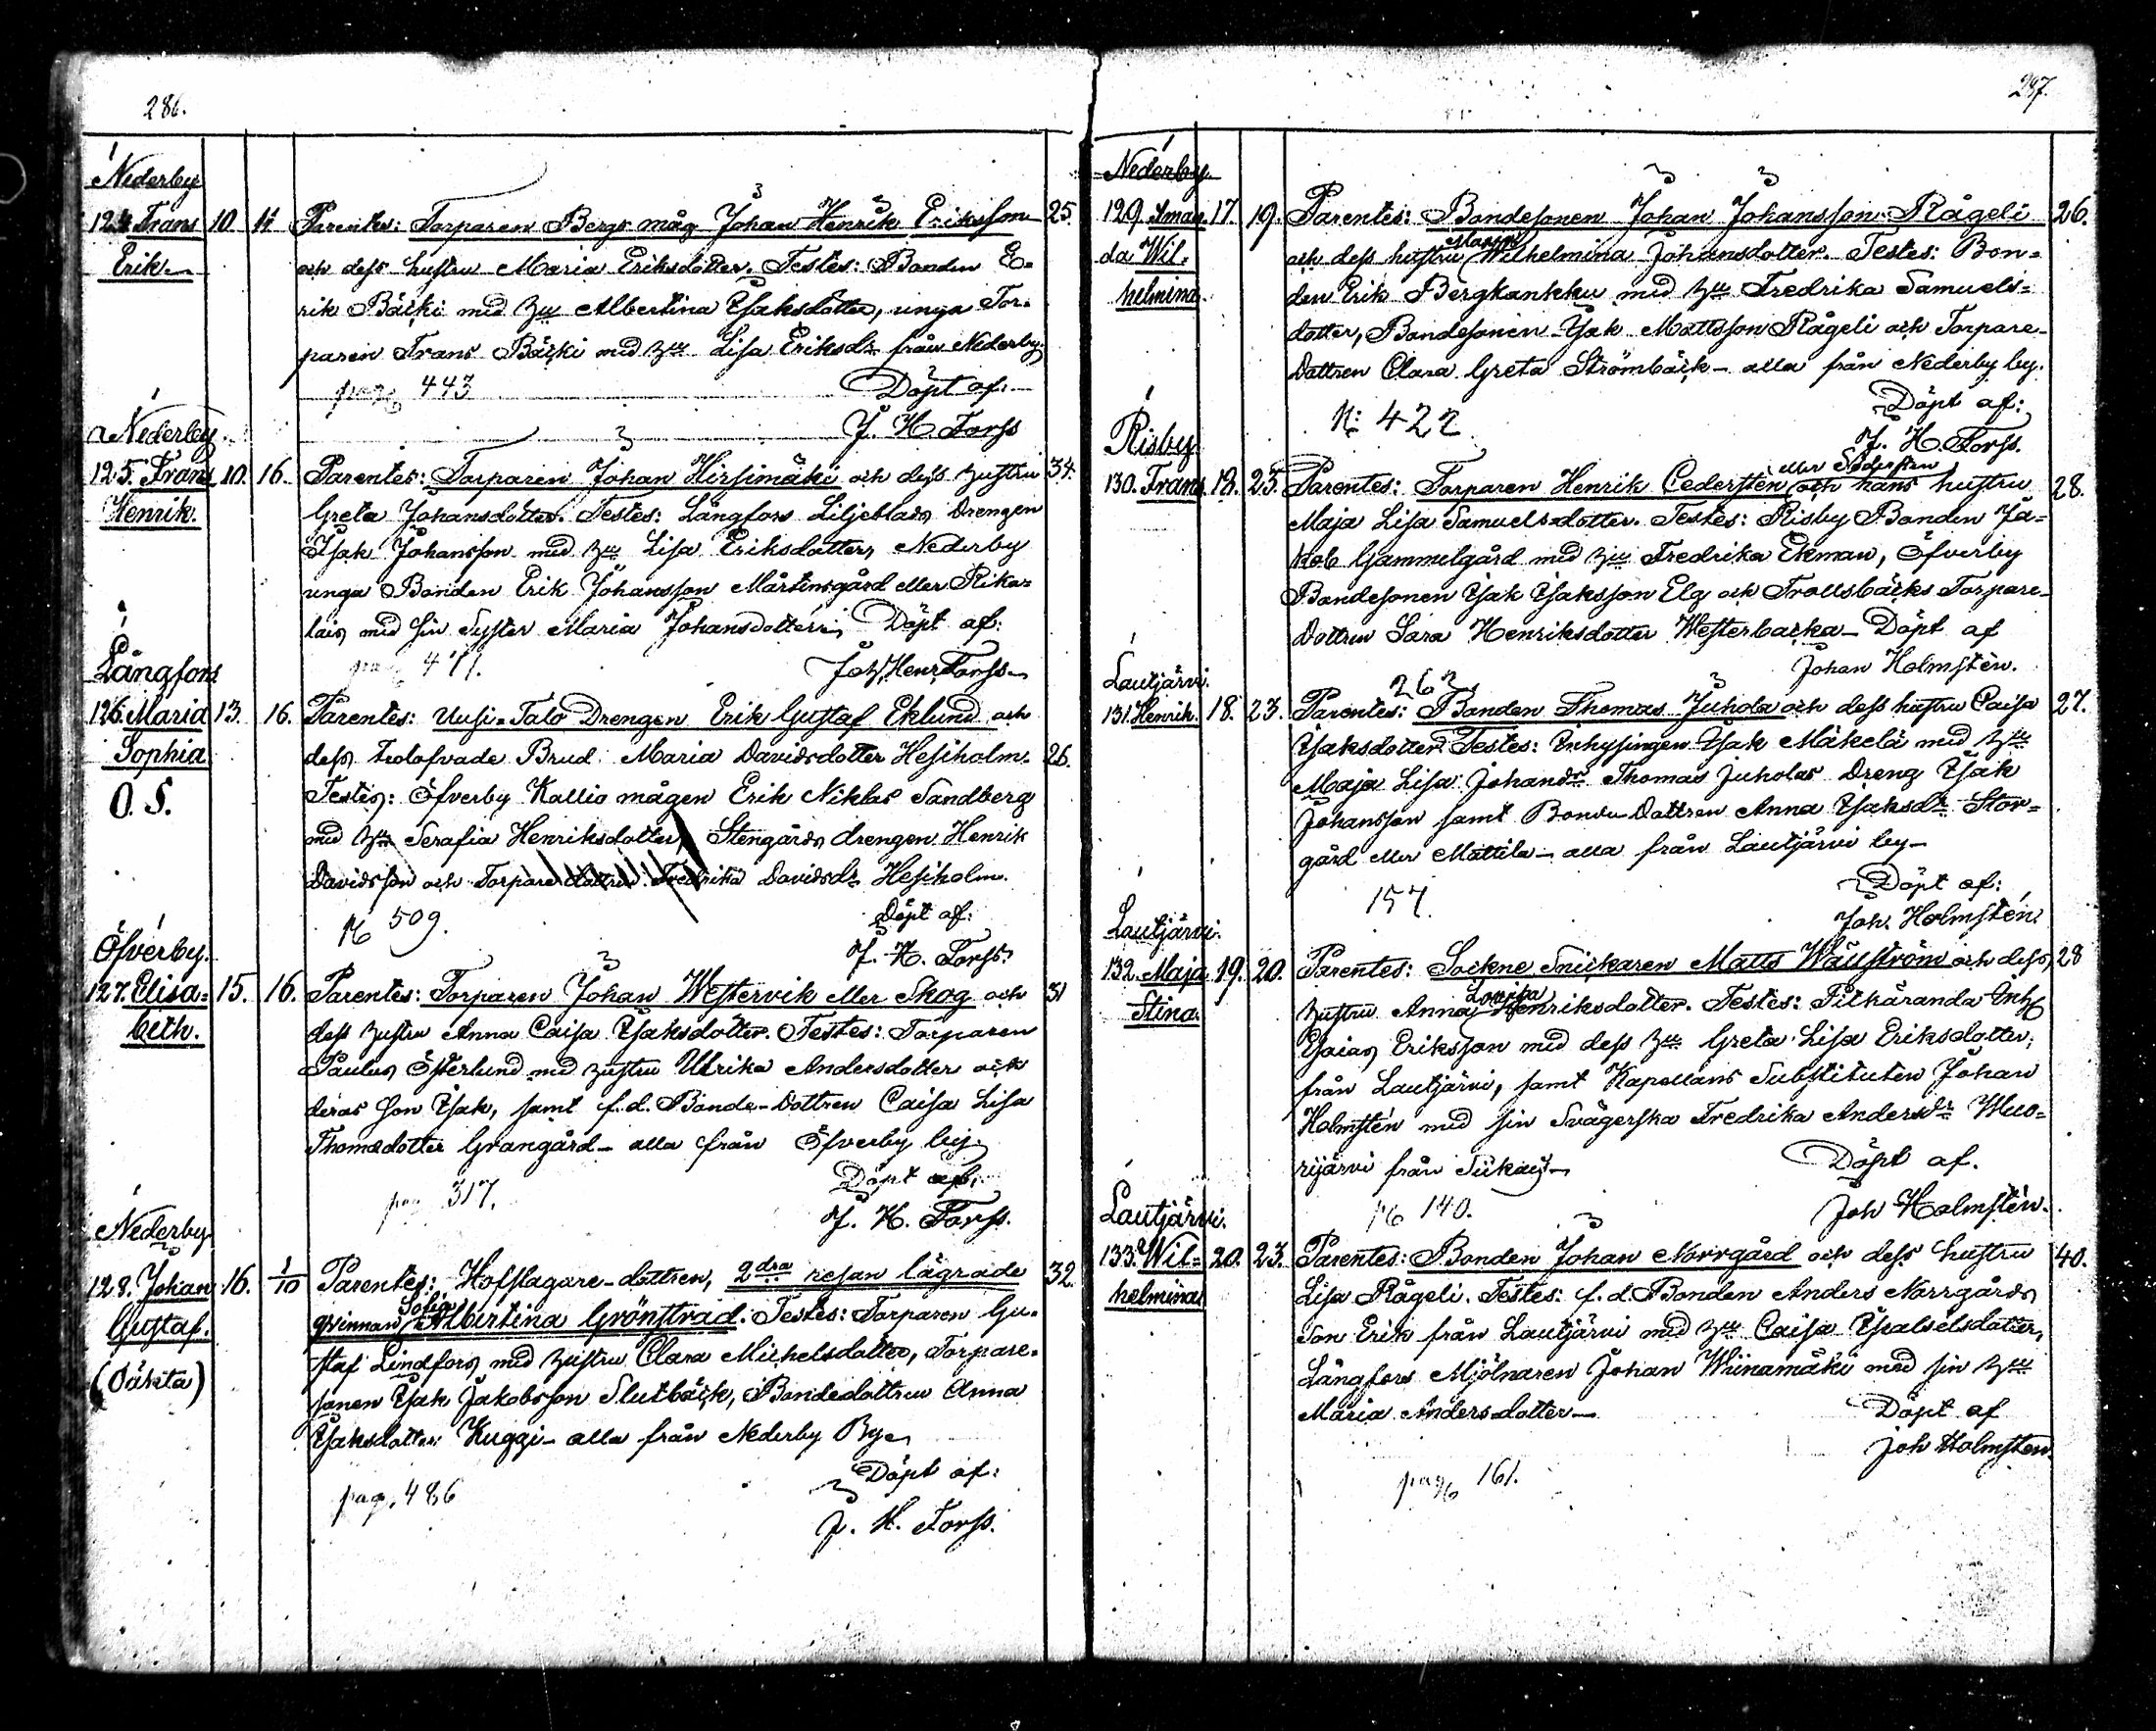 286.
Nederby
124. Frans 10 11 Parentes: Torparen Bergs måg Johan Henrik Eriksson 25.
Erik och dess hustru Maria Eriksdotter. Testes: Bonden E-
rik Bäcki med hu Albertina Isaksdotter, unga Tor-
paren Frans Bäcki med hu Lisa Eriksdr från Nederby.
pag 443 Döpt af:
J. H. Forss
Nederby.
125. Frans 10. 16. Parentes: Torparen Johan Hirsimäki och dess hustru 34.
Henrik. Greta Johansdotter. Testes: Långfors Liljeblads Drengen
Isak Johansson med hu Lisa Eriksdotter, Nederby
unga Bonden Erik Johansson Mårtensgård eller Rika-
lais med sin Syster Maria Johansdotter. Döpt af:
Joh. Henr Forss
Långfors
126. Maria 13. 16. Parentes: Uusi-Talo Drengen Erik Gustaf Eklund och
Sophia dess trolofvade Brud Maria Davidsdotter Hesiholm. 26.
O. S. Testes: Öfverby Kallio mågen Erik Niklas Sandberg
med hu Serafia Henriksdotter, Stengårds drengen Henrik
Davidsson och Torpare dottren Fredrika Davidsdr Hesiholm.
509. Döpt af:
J. H. Forss.
Öfverby.
127. Elisa- 15. 16. Parentes: Torparen Johan Westervik eller Skog och 31
beth. dess hustru Anna Caisa Isaksdotter. Testes: Torparen
Paulus Österlund med hustru Ulrika Andersdotter och
deras son Isak, samt f.d. Bonde-dottren Caisa Lisa
Thomædotter Grangård – alla från Öfverby by.
pag 317. Döpt af:
J. H. Forss.
Nederby
128. Johan 16. 1/10 Parentes: Hofslagare-dottren, 2dra resan lägrade 32.
Gustaf. qvinnan Sofia Albertina Grönstrad. Testes: Torparen Gu-
(Oäkta) staf Lindfors med hustru Clara Michelsdotter, Torpare-
sonen Isak Jakobsson Slutbäck, Bondedottren Anna
Isaksdotter Kuggi – alla från Nederby By.
pag. 486 Döpt af:
J. H. Forss.
287.
Nederby.
129. Aman- 17. 19. Parentes: Bondesonen Johan Johansson Rågeli 26.
da Wil- och dess hustru Maria Wilhelmina Johansdotter. Testes: Bon-
helmina. den Erik Bergkankku med hu Fredrika Samuels-
dotter, Bondesonen Isak Mattsson Rågeli och Torpare-
Dottren Clara Greta Strömbäck – alla från Nederby by.
N: 422 Döpt af:
J. H. Forss.
Risby
130. Frans 18. 25. Parentes: Torparen Henrik Cedersten eller Södersten och hans hustru 28.
Maja Lisa Samuelsdotter. Testes: Risby Bonden Ja-
kob Gammelgård med hu Fredrika Ekman, Öfverby
Bondesonen Isak Isaksson Elg och Trollsbäcks Torpare-
Dottren Sara Henriksdotter Westerbacka – Döpt af
262 Johan Holmstén.
Lautjärvi.
131. Henrik. 18. 23. Parentes: Bonden Thomas Juhola och dess hustru Caisa 27.
Isaksdotter. Testes: Inhysingen Isak Mäkelä med hu
Maja Lisa Johansdr Thomas Juholas Dreng Isak
Johansson samt Bonde-Dottren Anna Isaksdr Stor-
gård eller Mattila – alla från Lautjärvi by –
157. Döpt af:
Joh. Holmstén
Lautjärvi.
132. Maja 19. 20. Parentes: Sockne Snickaren Matts Wällström och dess 28
Stina. hustru Anna Lovisa Henriksdotter. Testes: Pitkäranda Inh
Esaias Eriksson med dess hu Greta Lisa Eriksdotter,
från Lautjärvi, samt Kapellans Substituten Johan
Holmstén med sin Svägerska Fredrika Andersdr Wuo-
rijärvi från
140. Döpt af.
Joh Holmstén.
Lautjärvi.
133. Wil- 20. 23. Parentes: Bonden Johan Norrgård och dess hustru 40.
helmina Lisa Rågeli. Testes: f.d. Bonden Anders Norrgårds
Son Erik från Lautjärvi med hu Caisa
Långfors Mjölnaren Johan Wiinamäki med sin hu
Maria Andersdotter – Döpt af
Joh Holmsten.
pag 161.